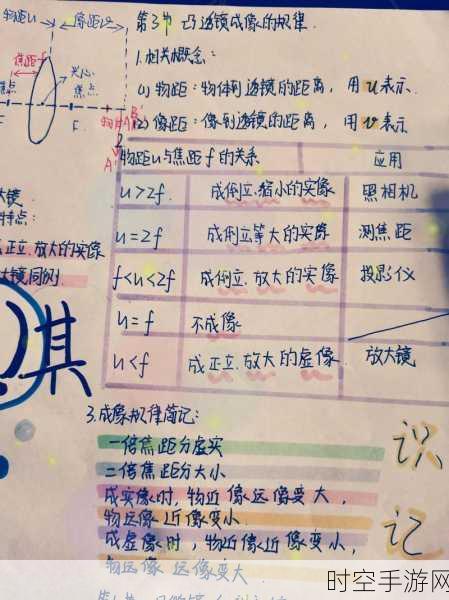 物距u 像距v
第3节 凸透镜成像的规律.
1.相关概念:
焦距f
(1) 物距:物体到透镜的距离,用u表示.
光心
焦点
(2) 像距:像到透镜的距离,用v表示
F
物距u与焦距f的关系 应用
u>2f 成倒立.缩小的实像 照相机
u=2f 成倒立等大的实像 测焦距
f<u<2f 成倒立.放大的实像 投影仪
u=f 不成像
u<f 成正立.放大的虚像 放大镜
特点:
正立.放大的实像
大镜同侧
其
3.成像规律简记:
一倍焦距分虚实
二倍焦距分大小
成实像时,物近像远像变大,
物远像近像变小.
成虚像时,物近像近像变小,
物远像远像变大
识
记
时空手游网